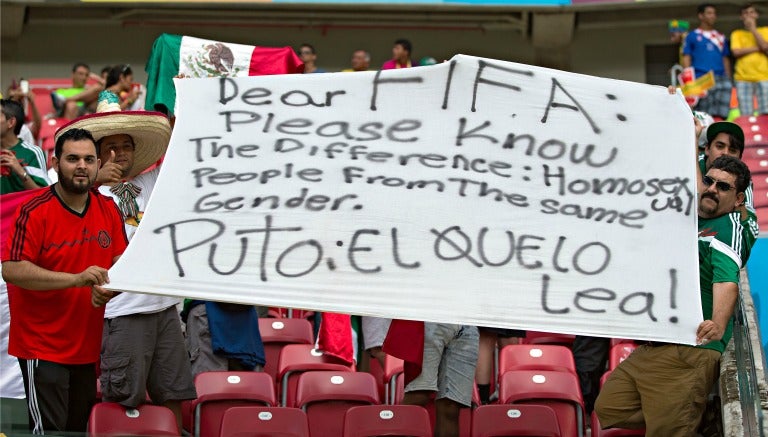 Dear FIFA:
Please Know
The Difference: Homosexual
People From The same
Gender.
Puto: EL QUE LO
Lea!